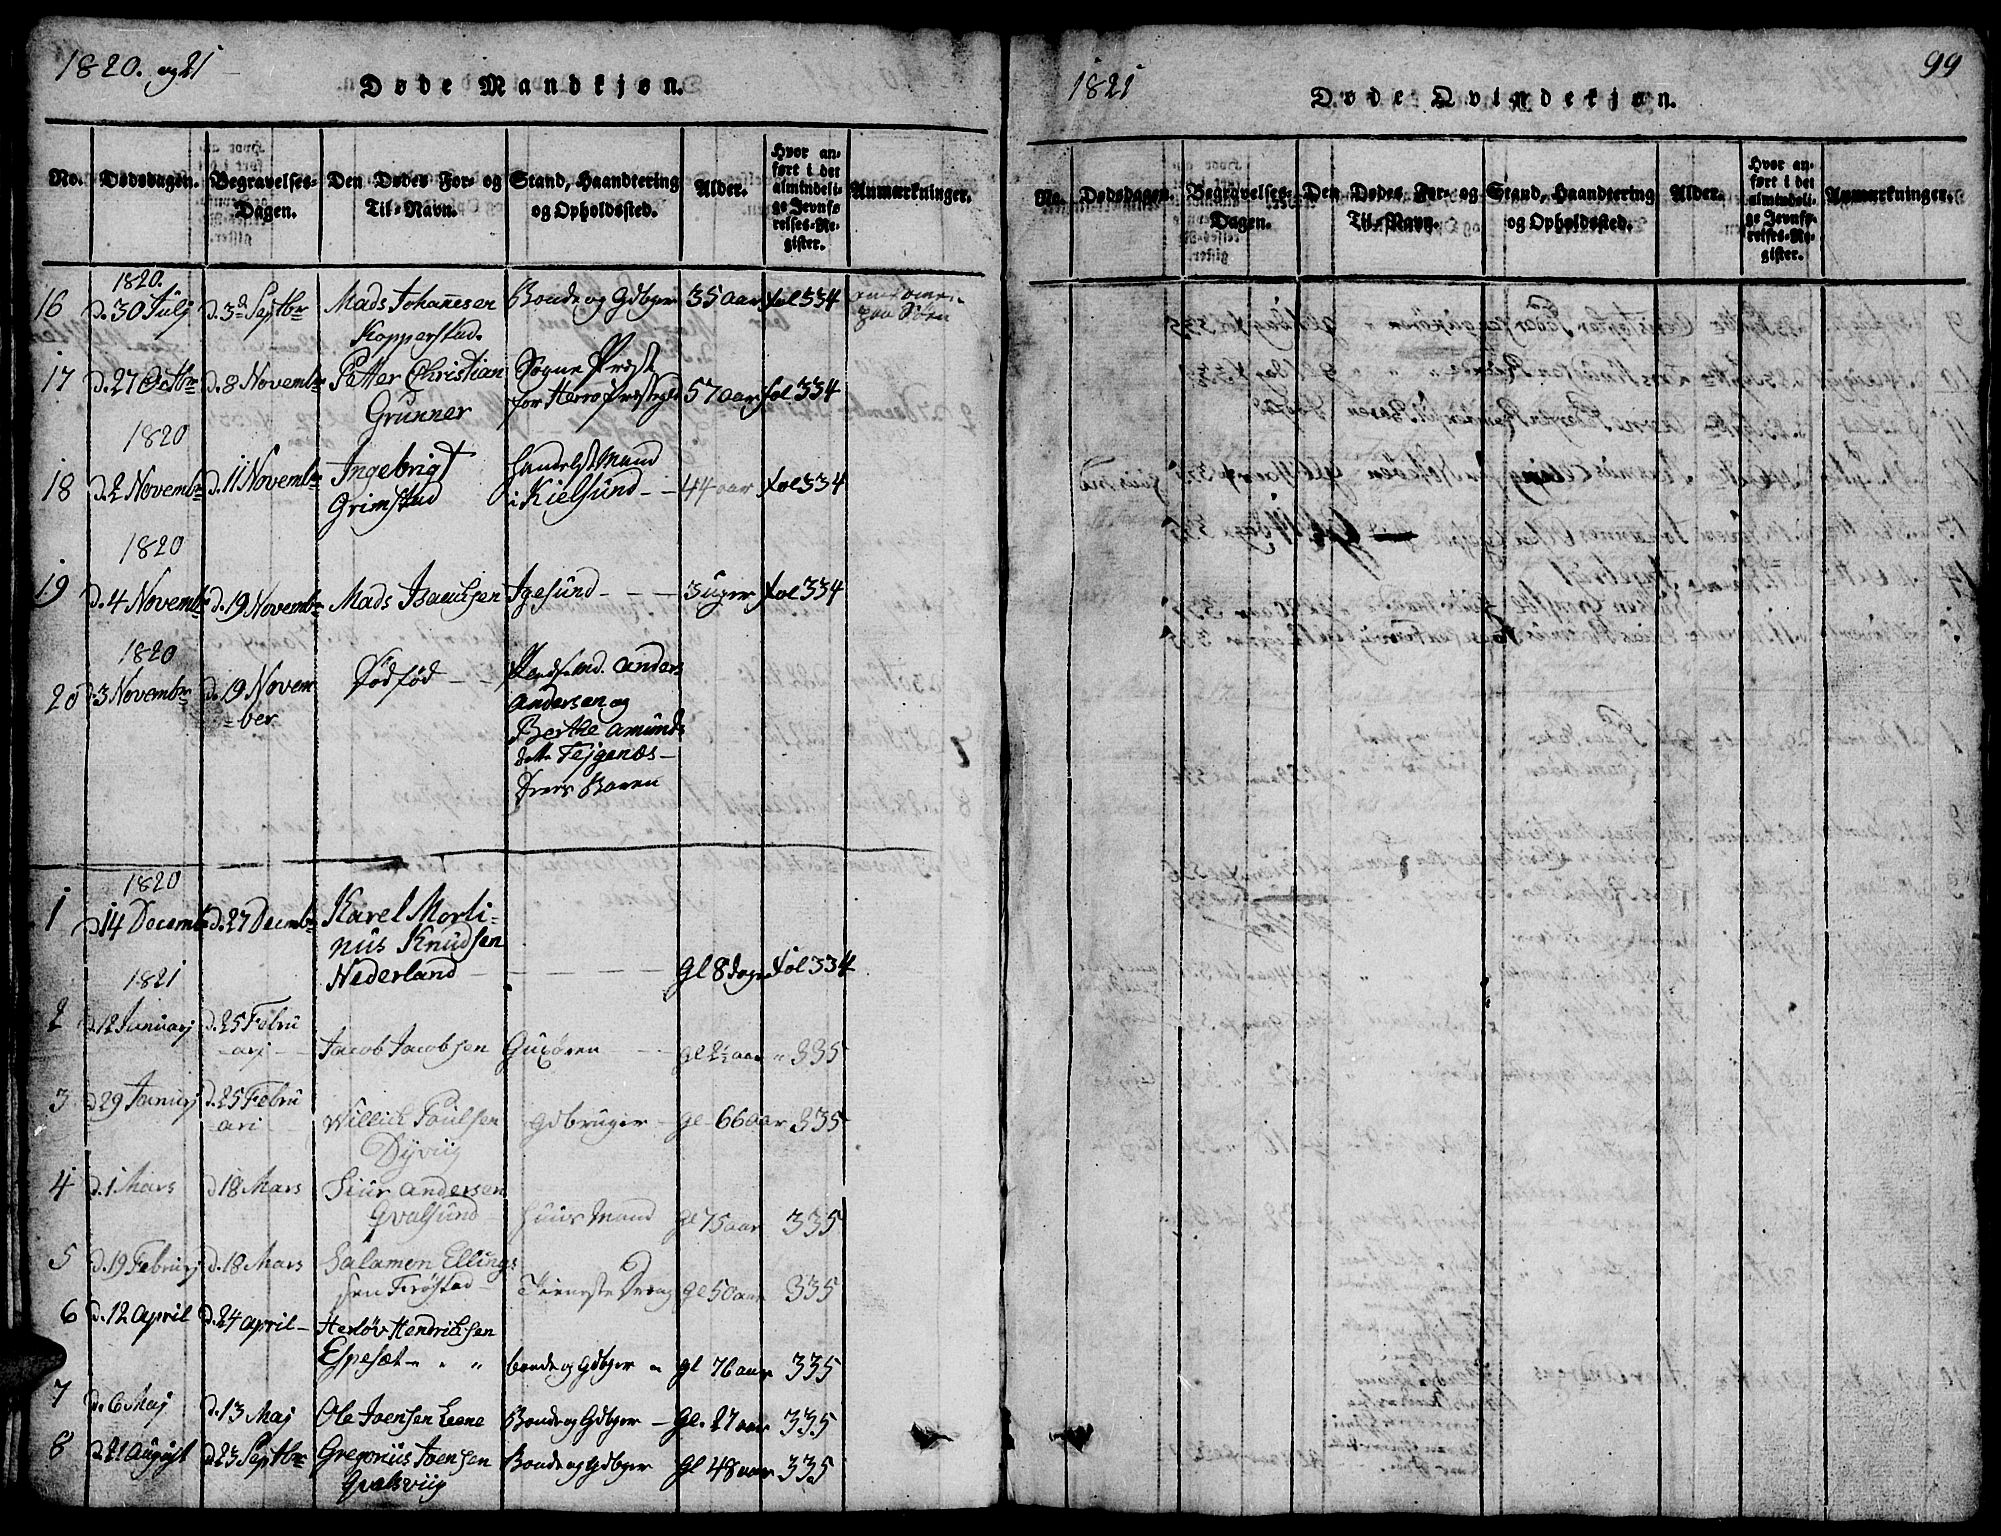 1820. og 21
Døde Mandkjøn.
No.
Dødsdagen.
Begravelses-
Dagen.
Den Dødes For- og
Til-Navn.
Stand, Haandtering
og Opholdssted.
Alder.
Hvor an-
ført i det
almindeli-
ge Jevnfø-
relses-Re-
gister.
Anmærkninger.
1820.
16 d. 30 Julj d. 3de Septbr Mads Johannesen Bonde og Gdbger 35 aar fol 334 omkomen
Kopperstad. paa Søen
17 d. 27 Octbr d. 8 Novembr Petter Christian Sogne Præst
Grunner for Herrø Præstegld 57 aar fol 334
1820
18 d. 2 Novembr d. 11 Novembr Ingebrigt Handelst Mand
Grimstad i Kielsund - - 44 aar fol 334
1820
19 d. 4 Novembr d. 19 Novembr Mads Isaachsen Igesund - - - 3 uger fol 334
1820
20 d. 3 Novembr d. 19 Novem Dødfød - - Anders
=ber Andersen og
Berthe Amunds
datter Tejgenæs -
Deres Baren
1820
1 d. 14 Decembr d. 27 Decembr Karel Morti-
nus Knudsen
Nederland - - - - - gl 8 dage fol 334
1821
2 d. 12 Januarj d. 25 Febru
-arj - Jacob Jacobsen Guxøren - - gl 2½ aar " 335
3 d. 29 Januarj d. 25 Febru
ari - Willich Poulsen Gdbruger - gl - 66 aar 335
Dyviig
4 d. 1 Mars d. 18 Mars Siur Andersen
Qvalsund - Huus Mand gl 75 aar 335
5 d. 19 Februarj d. 18 Mars Salamon Ellings
sen Frøstad - Tieneste Dreng gl 50 aar 335
6 d. 12 April d. 24 April - Herløv Hendrichsen
Espesæt - " " bonde og Gdbger " gl 76 aar 335
7 d. 6 Maj d. 13 Maj Ole Joensen Leene Bonde og Gdbger - gl. 27 aar 335
8 d. 21 August d. 23 Septbr Gregorius Joensen Bonde og Gdbger gl 48 aar 335
Qvalsviig
1821
Døde Qvindekjøn.
99
No.
Dødsdagen.
Begravelses-
Dagen.
Den Dødes For- og
Til-Navn.
Stand, Haandtering
og Opholdssted.
Alder.
Hvor an-
ført i det
almindeli-
ge Jevnfø-
relses-Re-
gister.
Anmærkninger.